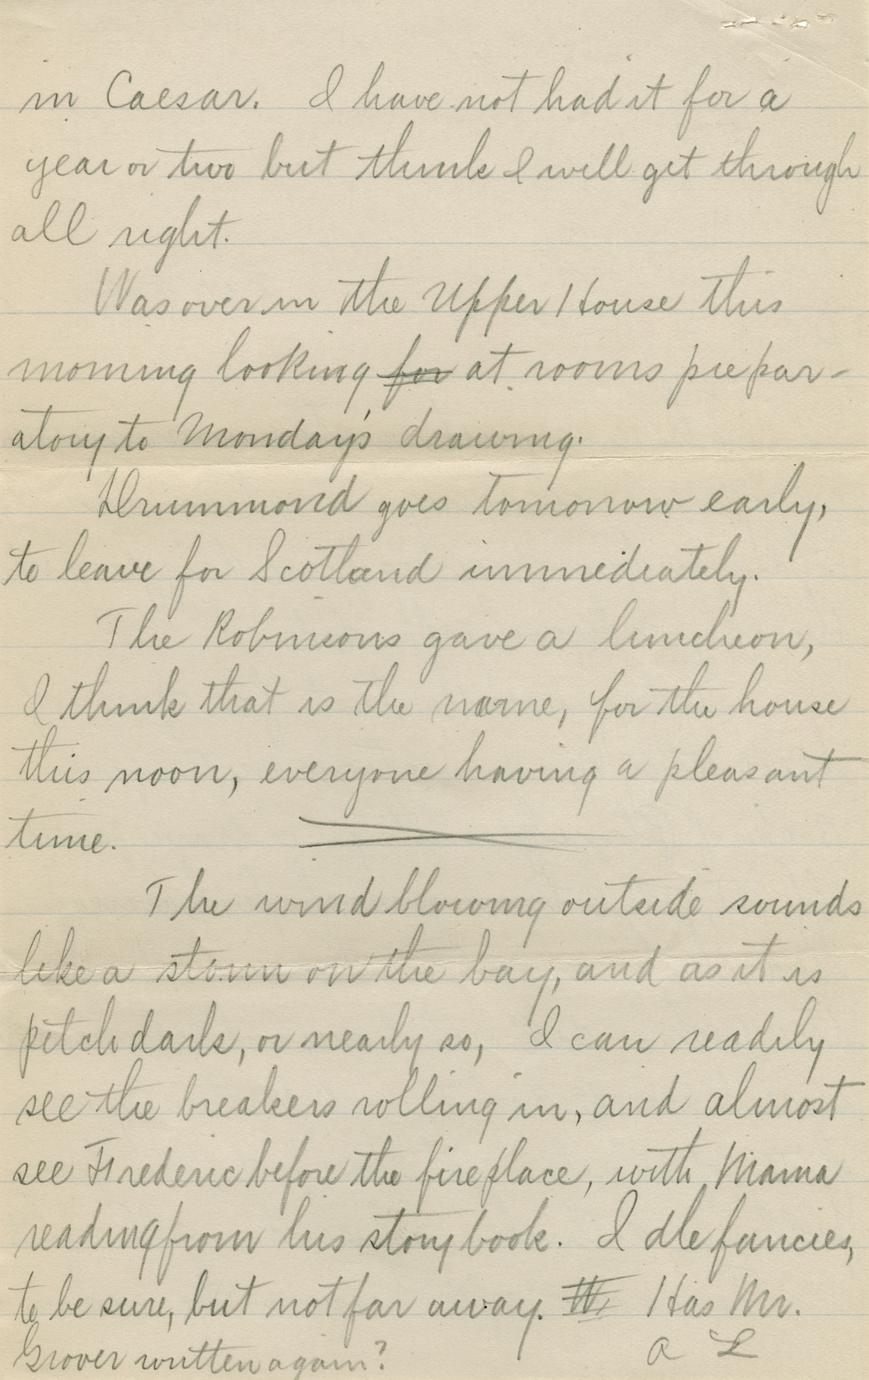 in Caesar. I have not had it for a
year or two but think I will get through
all right.
Was over in the Upper House this
morning looking for at rooms prepar-
atory to Monday's drawing.
Drummond goes tomorrow early,
to leave for Scotland immediately.
The Robinsons gave a luncheon,
I think that is the name, for the house
this noon, everyone having a pleasant
time.
The wind blowing outside sounds
like a storm on the bay, and as it is
pitch dark, or nearly so, I can readily
see the breakers rolling in, and almost
see Frederic before the fireplace, with Mama
reading from his story book. Idle fancies,
to be sure, but not far away. Has Mr.
Grover written again?